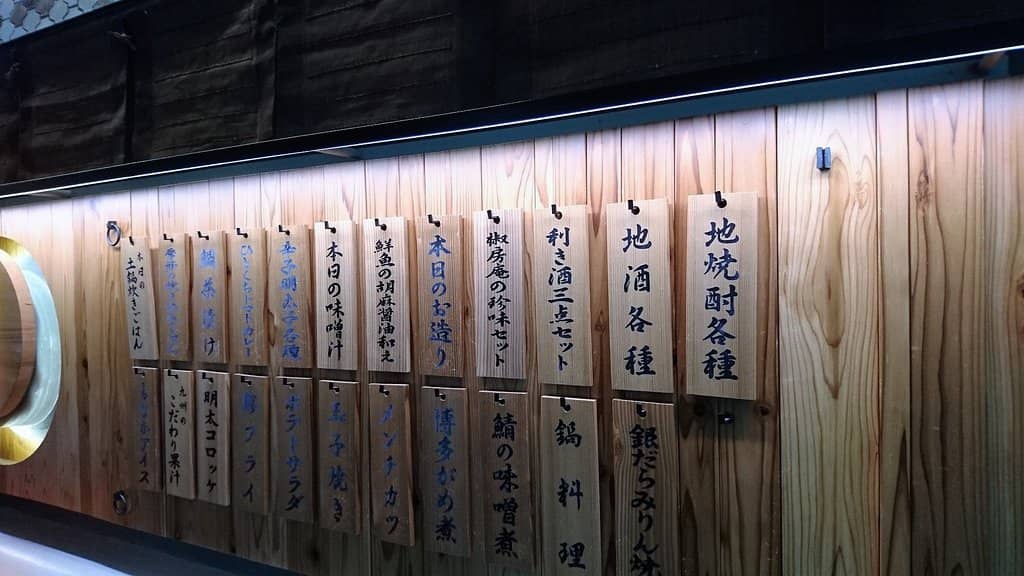 地焼酎各種
地酒各種
利き酒三点セット
椒房庵の珍味セット
本日のお造り
鮮魚の胡麻醤油和え
本日の味噌汁
辛子明太子各種
ひとくちドーカレー
鯛茶漬け
本日の
土鍋炊きごはん
銀だらみりん焼
鍋料理
鯖の味噌煮
博多がめ煮
メンチカツ
玉子焼き
ポテトサラダ
フライ
明太コロッケ
九州の
こだわり果汁
アイス